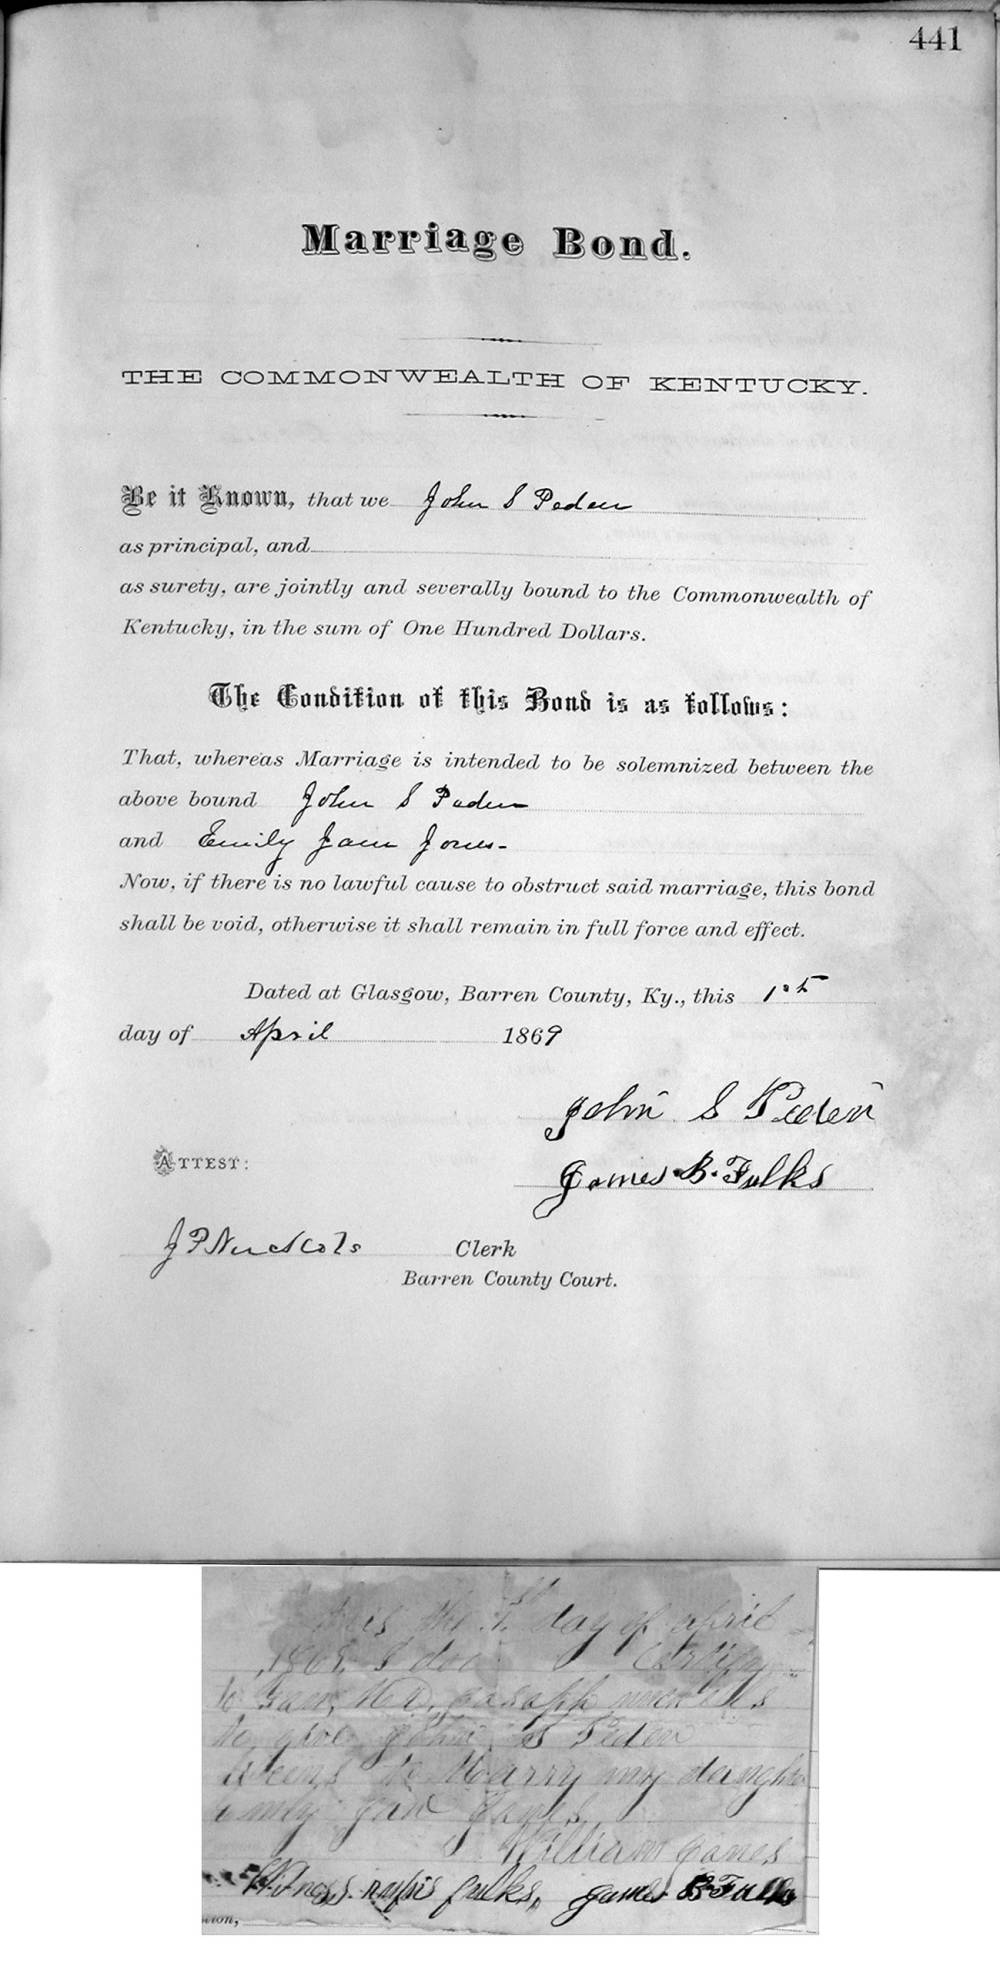 441
Marriage Bond.
THE COMMONWEALTH OF KENTUCKY.
Be it Known, that we John S Peden
as principal, and
as surety, are jointly and severally bound to the Commonwealth of
Kentucky, in the sum of One Hundred Dollars.
The Condition of this Bond is as follows:
That, whereas Marriage is intended to be solemnized between the
above bound John S Peden
and Emily Jane Jones-
Now, if there is no lawful cause to obstruct said marriage, this bond
shall be void, otherwise it shall remain in full force and effect.
Dated at Glasgow, Barren County, Ky., this 1st
day of April 1869
John S Peden
ATTEST:
James B. Fulks
J P Nuckols Clerk
Barren County Court.
this the day of april
I doo
to
give John S Peden
to Marry my daughter
Jane Jones
William Jones
Witness fulks, James B Fulks